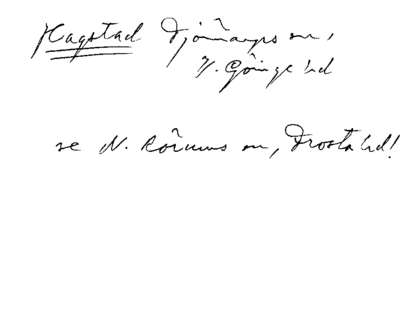 Hagstad Djönarps sn,
V. Göinge hd
se N. Rörums sn, Frosta hd!